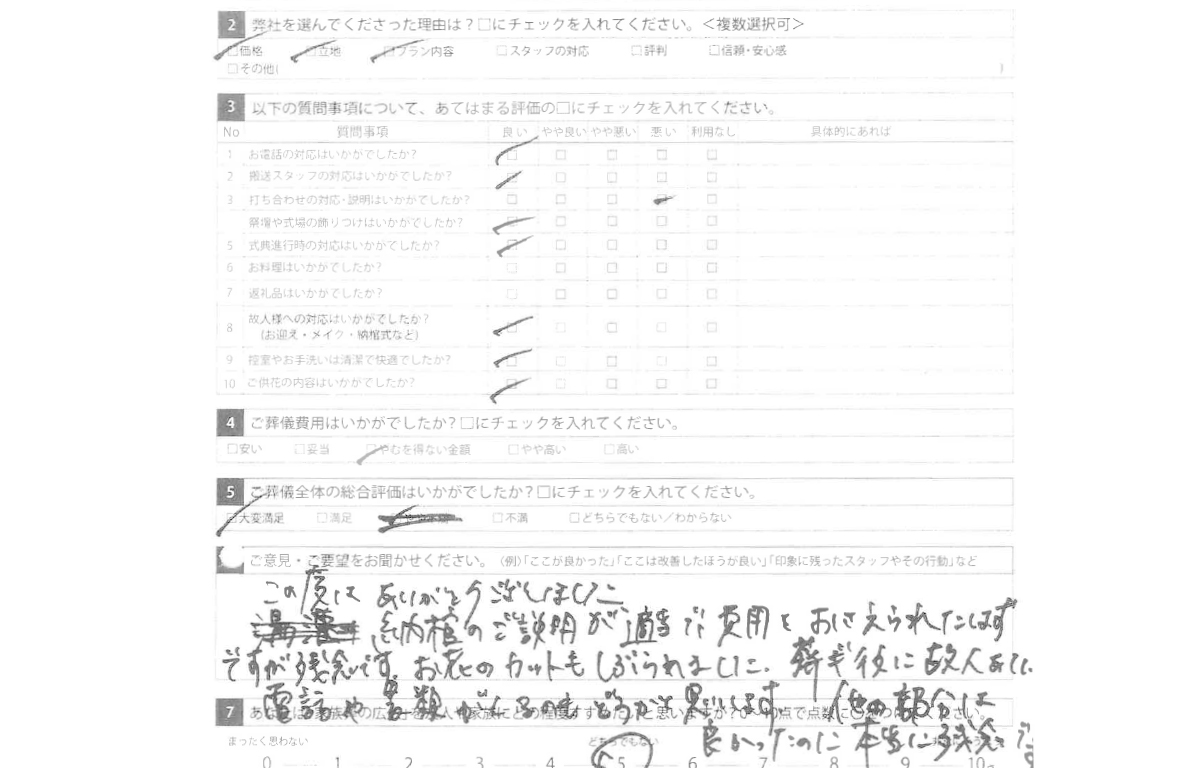 2 弊社を選んでくださった理由は？□にチェックを入れてください。＜複数選択可＞
□価格 □立地 □プラン内容 □スタッフの対応 □評判 □信頼・安心感
□その他( )
3 以下の質問事項について、あてはまる評価の□にチェックを入れてください。
No 質問事項 良い やや良い やや悪い 悪い 利用なし 具体的にあれば
1 お電話の対応はいかがでしたか？ □ □ □ □ □
2 搬送スタッフの対応はいかがでしたか？ □ □ □ □ □
3 打ち合わせの対応・説明はいかがでしたか？ □ □ □ □ □
祭壇や式場の飾りつけはいかがでしたか？ □ □ □ □ □
5 式典進行時の対応はいかがでしたか？ □ □ □ □ □
6 お料理はいかがでしたか？ □ □ □ □ □
7 返礼品はいかがでしたか？ □ □ □ □ □
8 故人様への対応はいかがでしたか？ □ □ □ □ □
(お迎え・メイク・納棺式など)
9 控室やお手洗いは清潔で快適でしたか？ □ □ □ □ □
10 ご供花の内容はいかがでしたか？ □ □ □ □ □
4 ご葬儀費用はいかがでしたか？□にチェックを入れてください。
□安い □妥当 □やむを得ない金額 □やや高い □高い
5 ご葬儀全体の総合評価はいかがでしたか？□にチェックを入れてください。
□大変満足 □満足 □不満 □どちらでもない／わからない
ご意見・ご要望をお聞かせください。（例）「ここが良かった」「ここは改善したほうが良い」「印象に残ったスタッフやその行動」など
この度は ありがとうございました
納棺のご説明が適当で費用をおさえられたはず
ですが残念です。お花のカットもしぶられました。葬ぎ後に故人あてに
電話や書類がくるのはどうかと思います。(他の部分は
7
良かったのに本当に残念です
まったく思わない どちらでもない
0 1 2 3 4 5 6 7 8 9 10